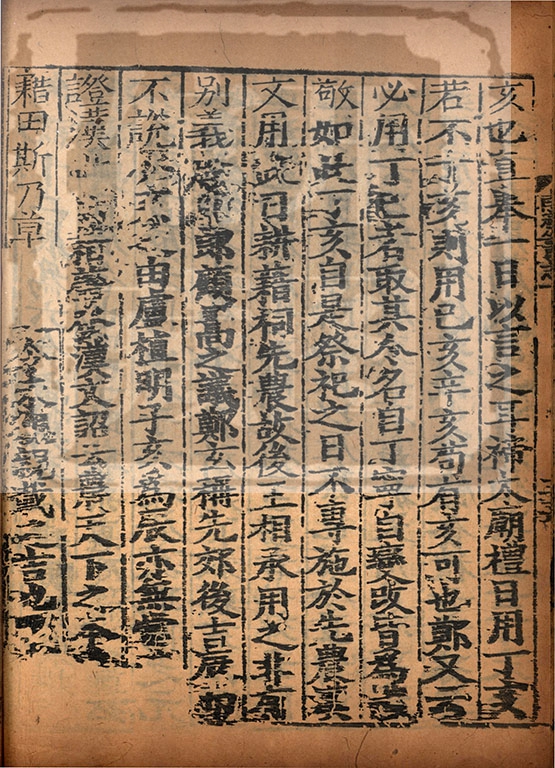 亥也直舉一日以言之耳禘太廟禮日用丁亥
若不丁亥則用己亥辛亥苟有亥可也鄭又云
必用丁己者取其令名自丁寧自變改皆為謹
敬如此丁亥自是祭祀之日不專施於先農漢
文用此日耕藉祠先農故後王相承用之非有
別義殿中郎顧暠之議鄭玄稱先郊後吉辰而
不說必亥之由盧植明子亥為辰亦無常
證漢世藉肇發漢文詔云農天下之本
藉田斯乃草親載之吉也